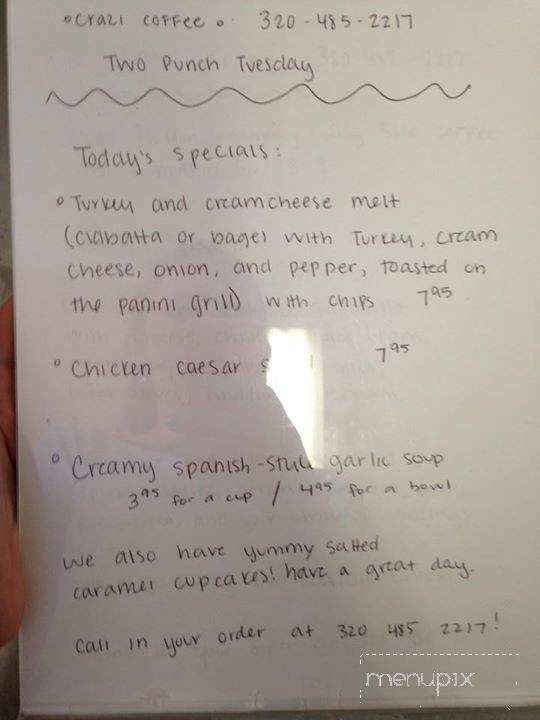 • Crazi Coffee • 320-485-2217
Two Punch Tuesday
Today's specials:
• Turkey and creamcheese melt
(ciabatta or bagel with Turkey, cream
cheese, onion, and pepper, toasted on
the panini grill) with chips 7.95
• Chicken caesar 7.95
• Creamy spanish-style garlic soup
3.95 for a cup / 4.95 for a bowl
we also have yummy salted
caramel cupcakes! have a great day.
Call in your order at 320 485 2217!
menupix